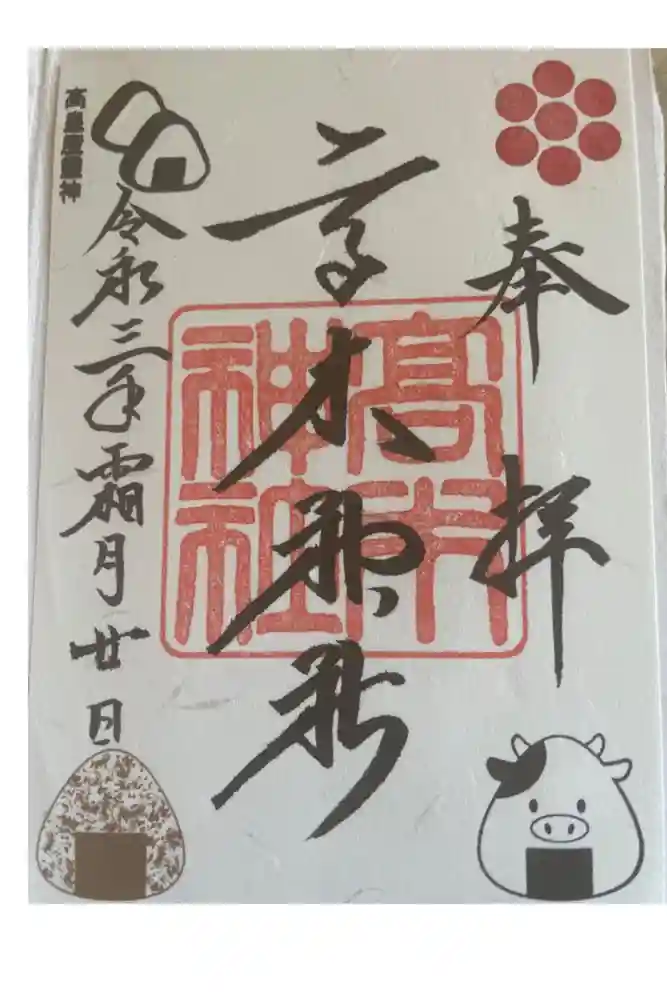 奉拝
高木神社
高木
神社
令和三年霜月廿日
高皇産靈神